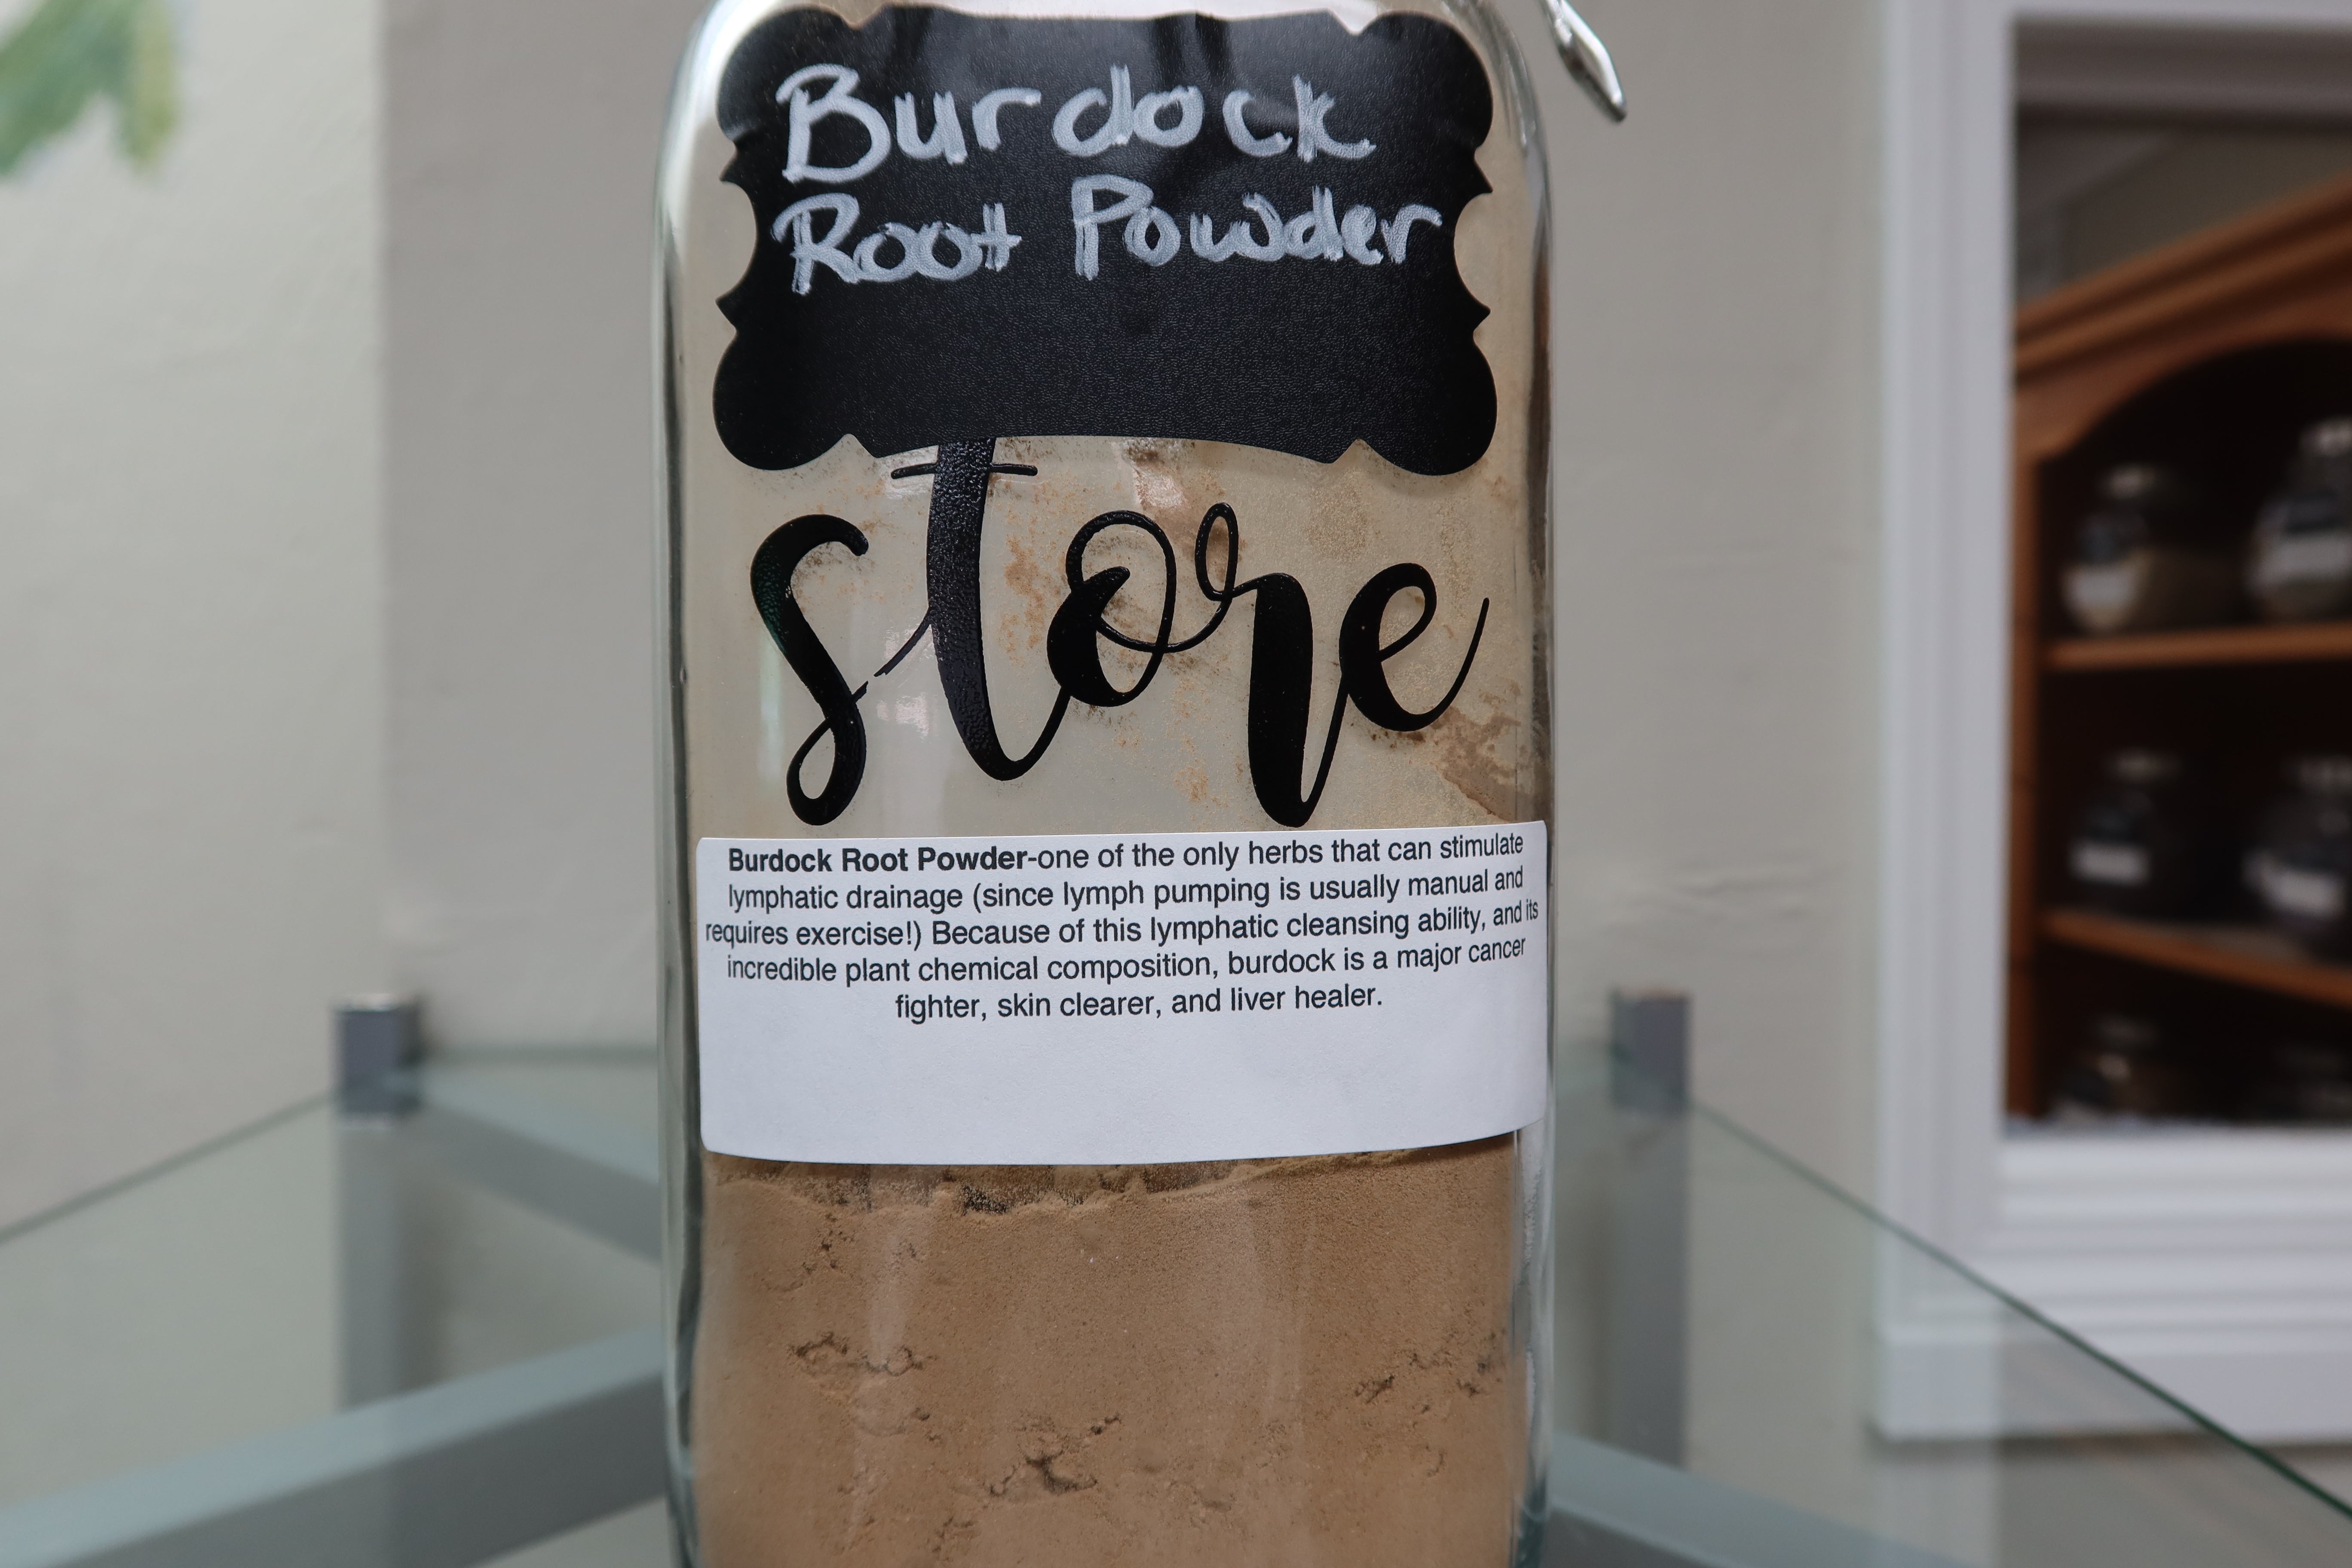 Burdock
Root Powder
store
Burdock Root Powder-one of the only herbs that can stimulate
lymphatic drainage (since lymph pumping is usually manual and
requires exercise!) Because of this lymphatic cleansing ability, and its
incredible plant chemical composition, burdock is a major cancer
fighter, skin clearer, and liver healer.